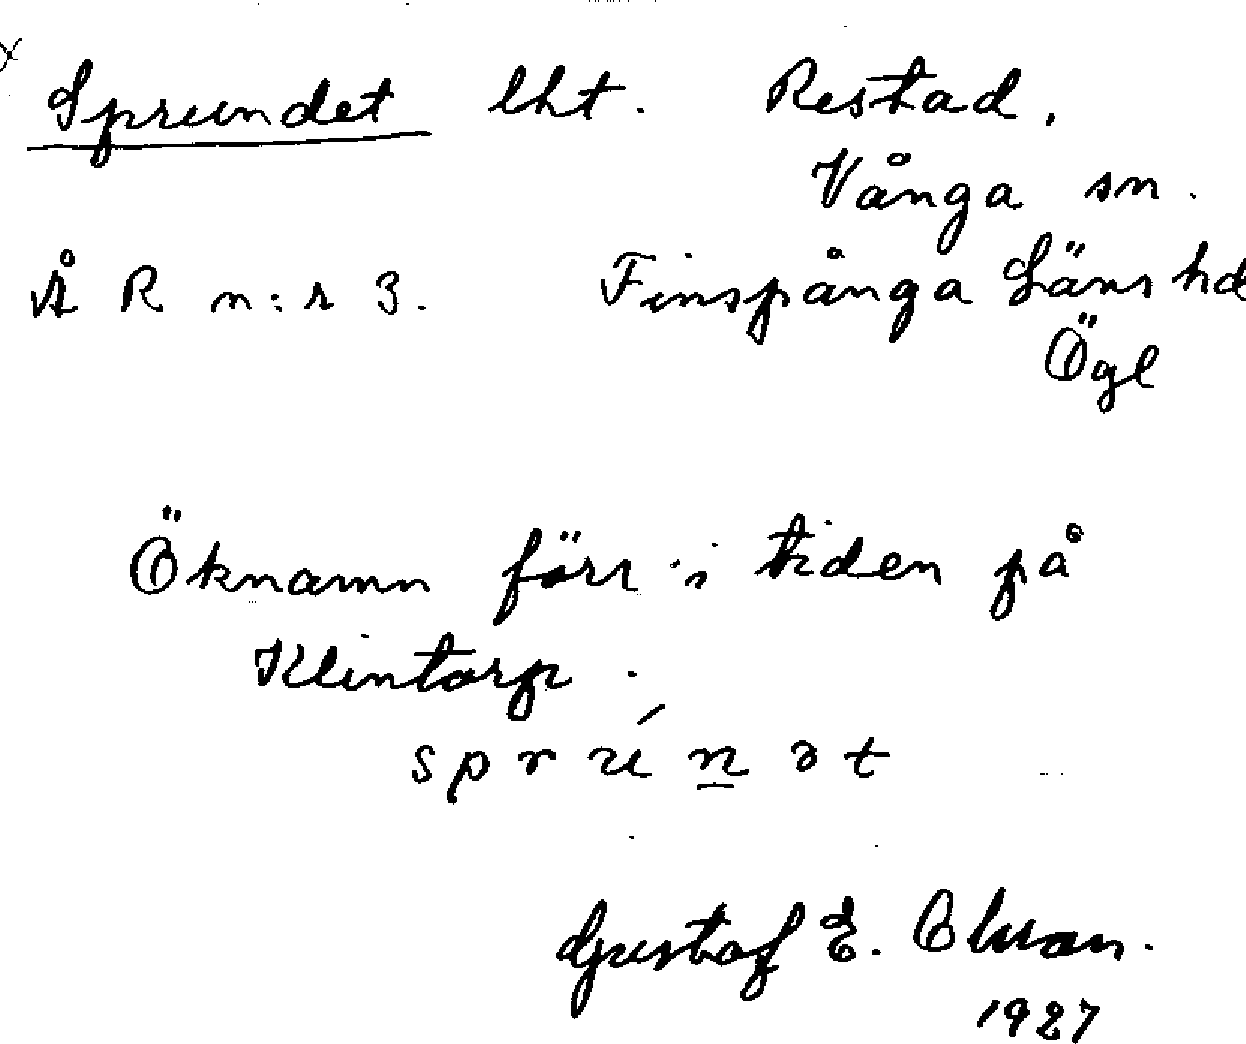 Sprundet lht. Restad.
Vånga sn.
Å R n:r 3. Finspånga Läns hd
Ögl
Öknamn förr i tiden på
Klintorp.
sprúnət
Gustaf E.
1927